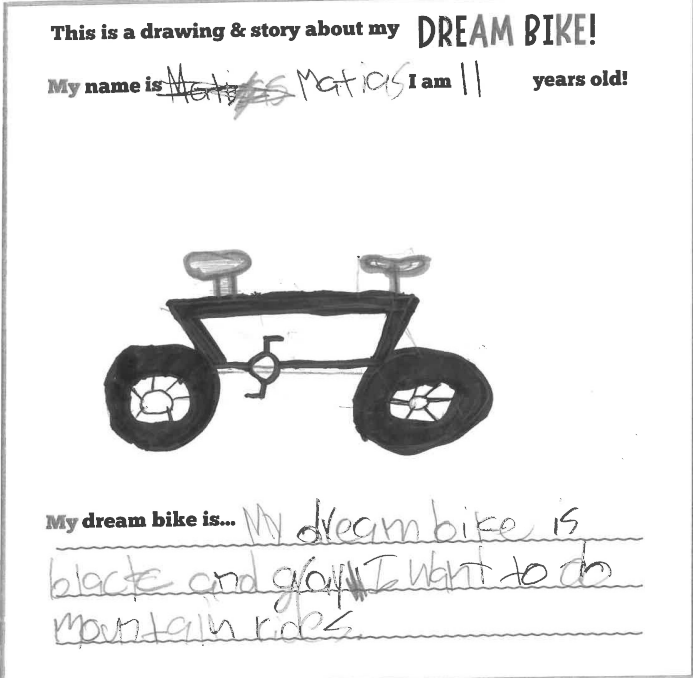 This is a drawing & story about my DREAM BIKE!
My name is Matias I am 11 years old!
My dream bike is... My dream bike is
black and gray I want to do
mountain rides.